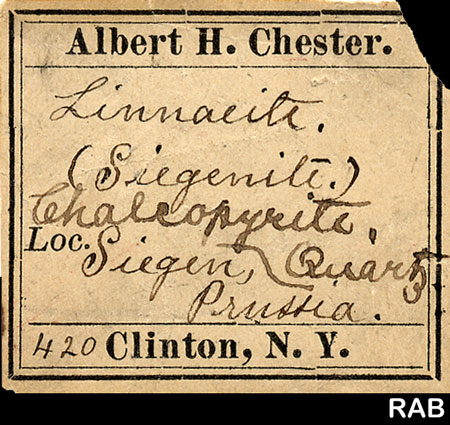 Albert H. Chester.
Linnaeite.
(Siegenite.)
Chalcopyrite,
Loc. Siegen, Quartz
Prussia.
420 Clinton, N. Y.
RAB